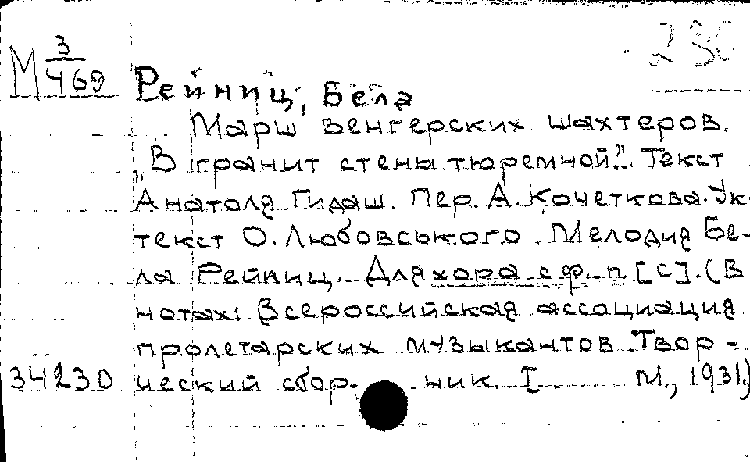 М 3/469
Рейниц, Бела
Марш венгерских шахтеров.
„В гранит стены тюремной." Текст
Анатоля Гидаш. Пер. А. Кочеткова. Ук.
текст О. Любовського. Мелодия Бе-
ла Рейниц. Для хора с ф.-п [с]. (В
нотах: Всероссийская ассоциация
пролетарских музыкантов. Твор-
34230 ческий сбор- ник. I М., 1931.)